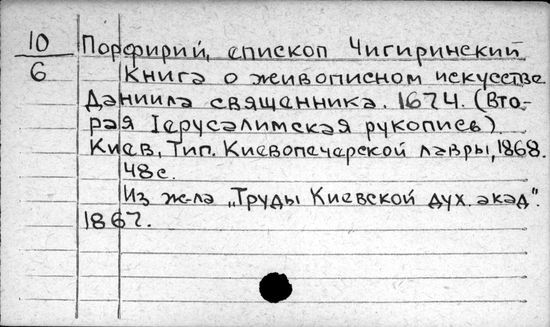 10
6
Порфирий, епископ Чигиринский
Книга о живописном искусстве
Даниила священника. 1674. (Вто-
рая Іерусалимская рукопись)
Киев, Тип. Киевопечерской лавры, 1868.
48с.
Из ж-ла „Труды Киевской дух. акад".
1867.